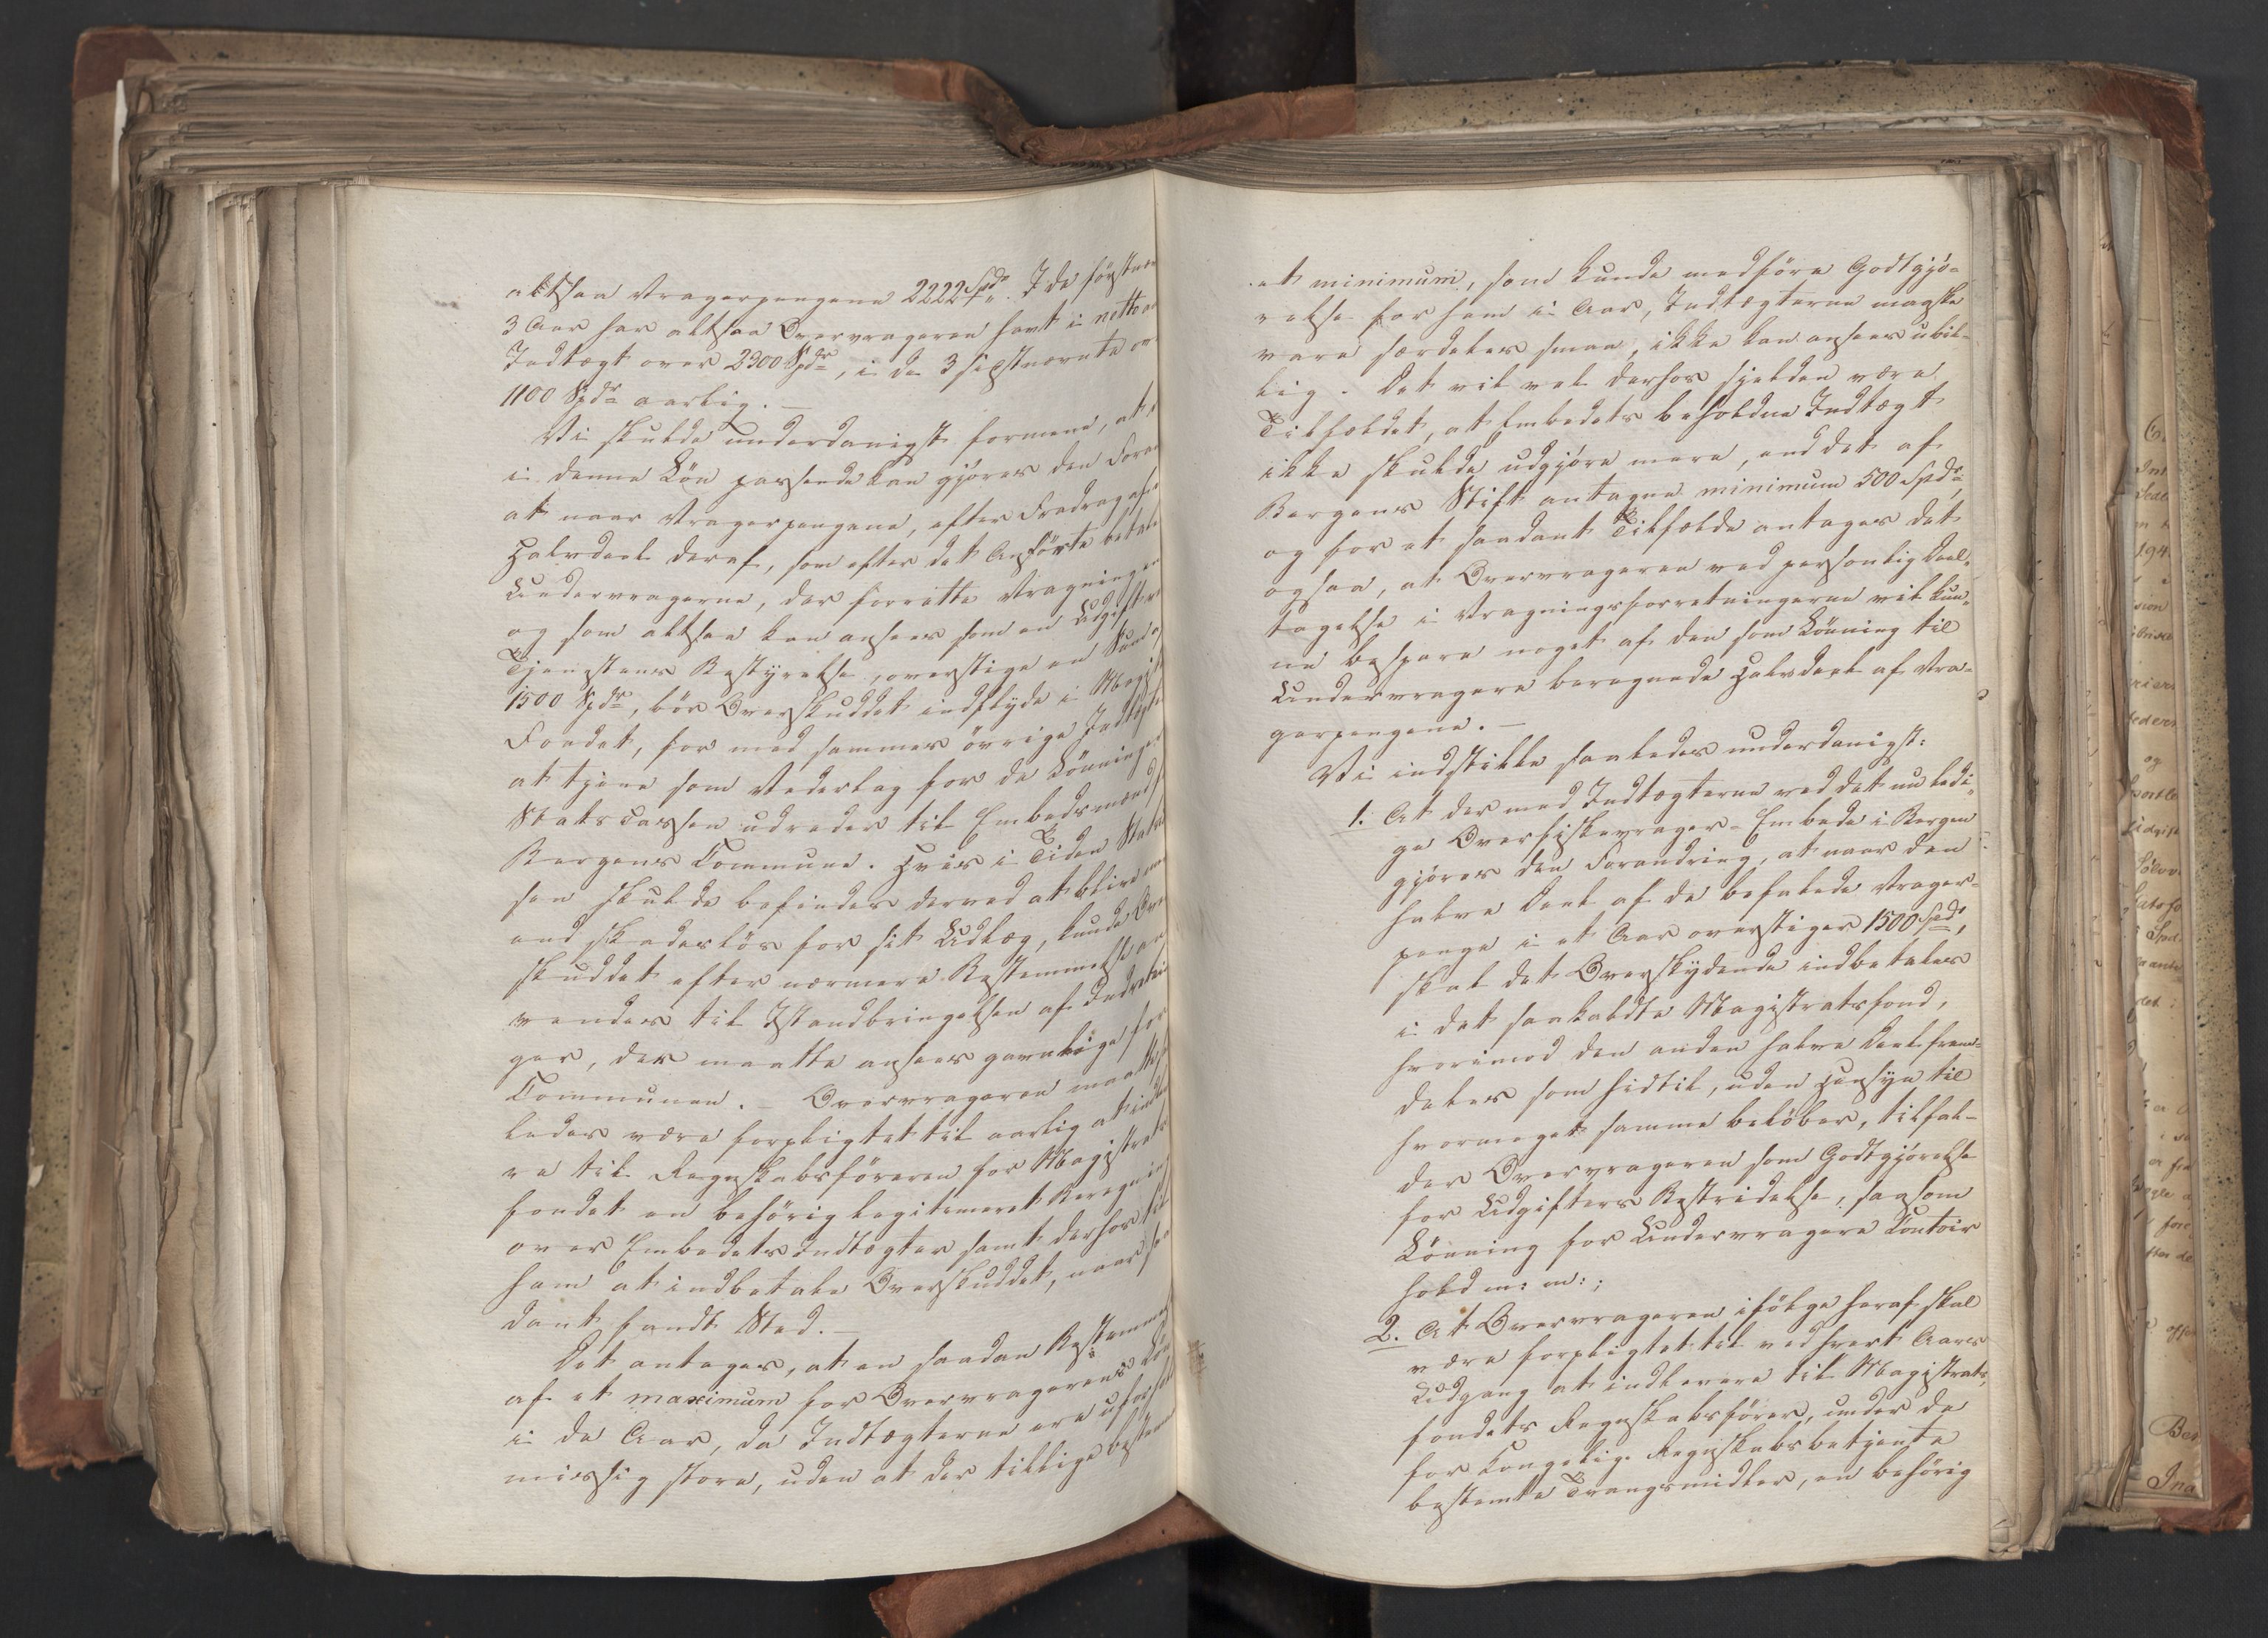 altsaa Vragerpengene 2222 Spdr. I de förstnæv
3 Aar har altsaa Overvrageren havt i netto aar
Indtægt over 2300 Spdr, i de 3 sidstnævnte over
1100 Spdr aarlig. —
Vi skulde underdanigst formene, at
i denne Lön passende kan gjöres den Foran
at naar Vragerpengene, efter Fradrag af
Halvdeel deraf, som efter det Anförte betale
Undervragerne, der forrette Vragningen
og som altsaa kan ansees som en Udgift ved
Tjenestens Bestyrelse, overstige en Sum af
1500 Spdr, bör Overskuddet indflyde i Magist
Fondet, for med sammes övrige Indtægter
at tjene som Vederlag for de Lönninger
Statscassen udreder til Embedsmænd i
Bergens Commune. Hvis i Tiden Statscas
sen skulde befindes derved at blive mere
end skadeslös for sit Udlæg, kunde Over
skuddet efter nærmere Bestemmelse an
vendes til Istandbringelsen af Indretnin
ger, der maatte ansees gavnlige for
Communen. — Overvrageren maatte saa
ledes være forpligtet til aarlig at indleve
re til Regnskabsföreren for Magistrats
fondet en behörig legitimeret Beregning
over Embedets Indtægter samt derhos til
ham at indbetale Overskuddet, naar saa
dant fandt Sted. —
Det antages, at en saadan Bestemmelse
af et maximum for Overvragerens Lön
i de Aar, da Indtægterne ere uforhol
mæssig store, uden at der tillige bestemmes
et minimum, som kunde medföre Godtgjö-
relse for ham i Aar, Indtægterne maaske
vare særdeles smaa, ikke kan ansees ubil-
lig. Det vil vel derhos sjelden være
Tilfældet, at Embedets beholdne Indtægt
ikke skulde udgjöre mere, end det af
Bergens Stift antagne minimum 500 Spdr,
og for et saadant Tilfælde antages det
ogsaa, at Overvrageren ved personlig Deel-
tagelse i Vragningsforretningerne vil kun-
ne bespare noget af den som Lönning til
Undervragere beregnede Halvdeel af Vra-
gerpengene. —
Vi indstille saaledes underdanigst:
1. At der med Indtægterne ved det nu ledi-
ge Overfiskevrager-Embede i Bergen
gjöres den Forandring, at naar den
halve Deel af de befalede Vrager-
penge i et Aar overstiger 1500 Spdr,
skal det Overskydende indbetales
i det saakaldte Magistratsfond,
hvorimod den anden halve Deel frem-
deles som hidtil, uden Hensyn til
hvormeget samme belöber, tilfal-
der Overvrageren som Godtgjörelse
for Udgifters Bestridelse, saasom
Lönning for Undervragere Contoir
hold m: m:;
2. At Overvrageren ifölge heraf skal
være forpligtet til ved hvert Aars
Udgang at indlevere til Magistrats-
fondets Regnskabsförer, under de
for Kongelige Regnskabsbetjente
bestemte Tvangsmidler, en behörig